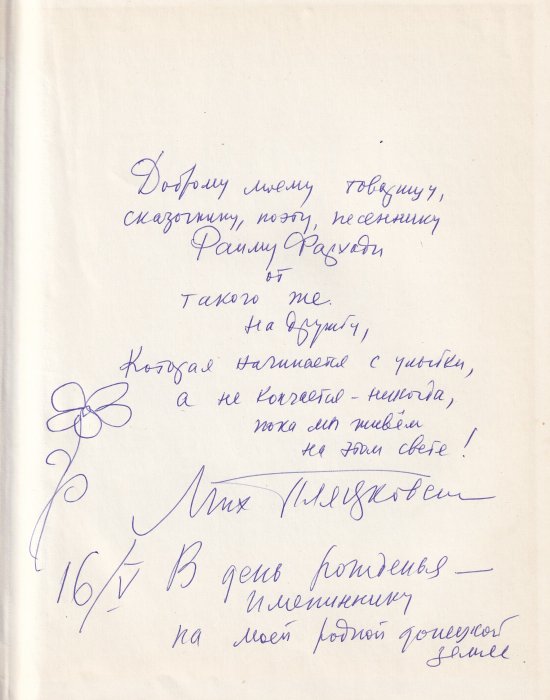 Доброму моему товарищу,
сказочнику, поэту, песеннику
Раиму Фархади
от
такого же.
На дружбу,
Которая начинается с улыбки,
а не кончается - никогда,
пока мы живём
на этом свете!
Мих Пляцковский
16/V В день рожденья —
имениннику
на моей родной донецкой
земле